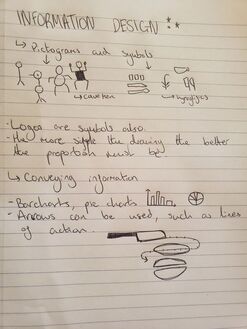 INFORMATION DESIGN
↳ Pictograms and symbols
↳ cavemen
↳ hyroglifics
- Logos are symbols also.
- the more simple the drawing the better the proportion must be
↳ Conveying information
- Barcharts, pie charts
- Arrows can be used, such as lines of action.